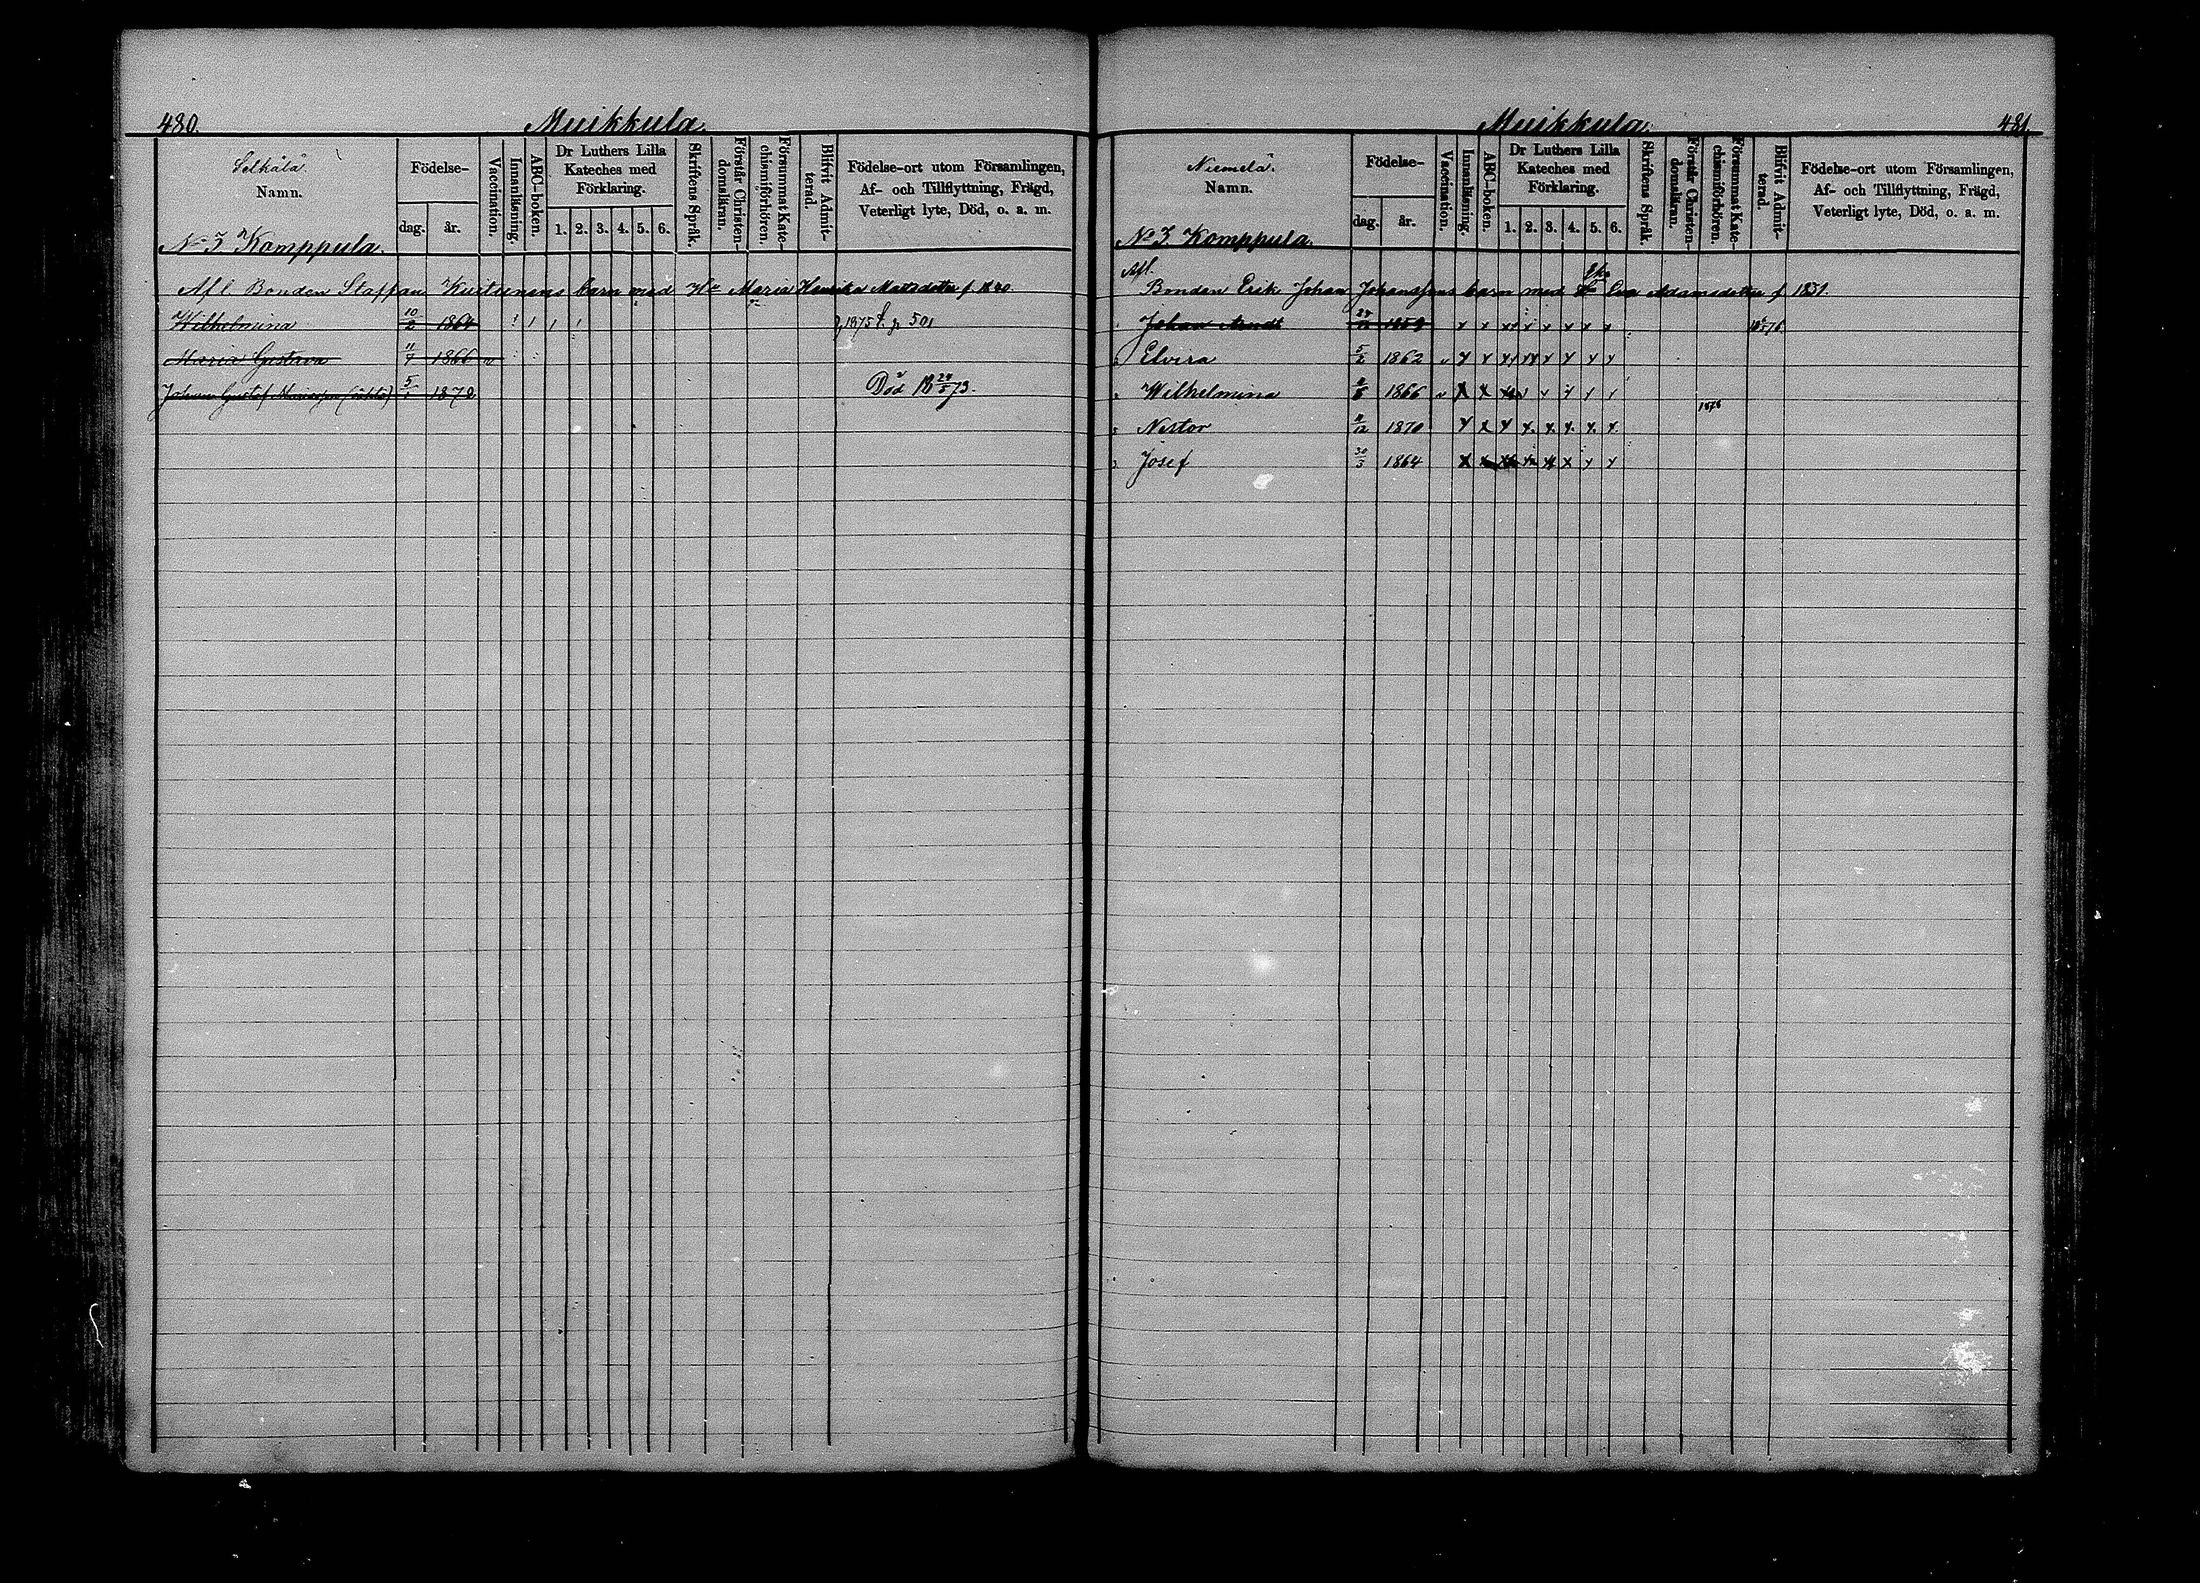 480.
Muikkula.
Selkälä
Namn.
Födelse-
dag.
år.
Vaccination.
Innanläsning.
ABC-boken.
Dr Luthers Lilla
Kateches med
Förklaring.
1. 2. 3. 4. 5. 6.
Skriftens Språk.
Förstår Christen-
domsläran.
Försummat Kate-
chismiförhören.
Blifvit Admit-
terad.
Födelse-ort utom Församlingen,
Af- och Tillflyttning, Frägd,
Veterligt lyte, Död, o. a. m.
No 3 Komppula.
Afl. Bonden Staffan barn med Maria Matsdotter f. 1840
Wilhelmina 10/2 1864 1875 p 501
Maria Gustava 11/4 1866
Johan Gustaf 5/1 1872 Död 73.
481
Muikkula.
Niemelä.
Namn.
Födelse-
dag.
år.
Vaccination.
Innanläsning.
ABC-boken.
Dr Luthers Lilla
Kateches med
Förklaring.
1. 2. 3. 4. 5. 6.
Skriftens Språk.
Förstår Christen-
domsläran.
Försummat Kate-
chismiförhören.
Blifvit Admit-
terad.
Födelse-ort utom Församlingen,
Af- och Tillflyttning, Frägd,
Veterligt lyte, Död, o. a. m.
No 3 Komppula.
Afl.
Bonden Erik Johan Johanssons barn med Eva Adamsdotter f 1831.
Johan 1859
Elvira 5/2 1862
Wilhelmina 1866
1878
Nestor 1870
Josef 30/3 1864